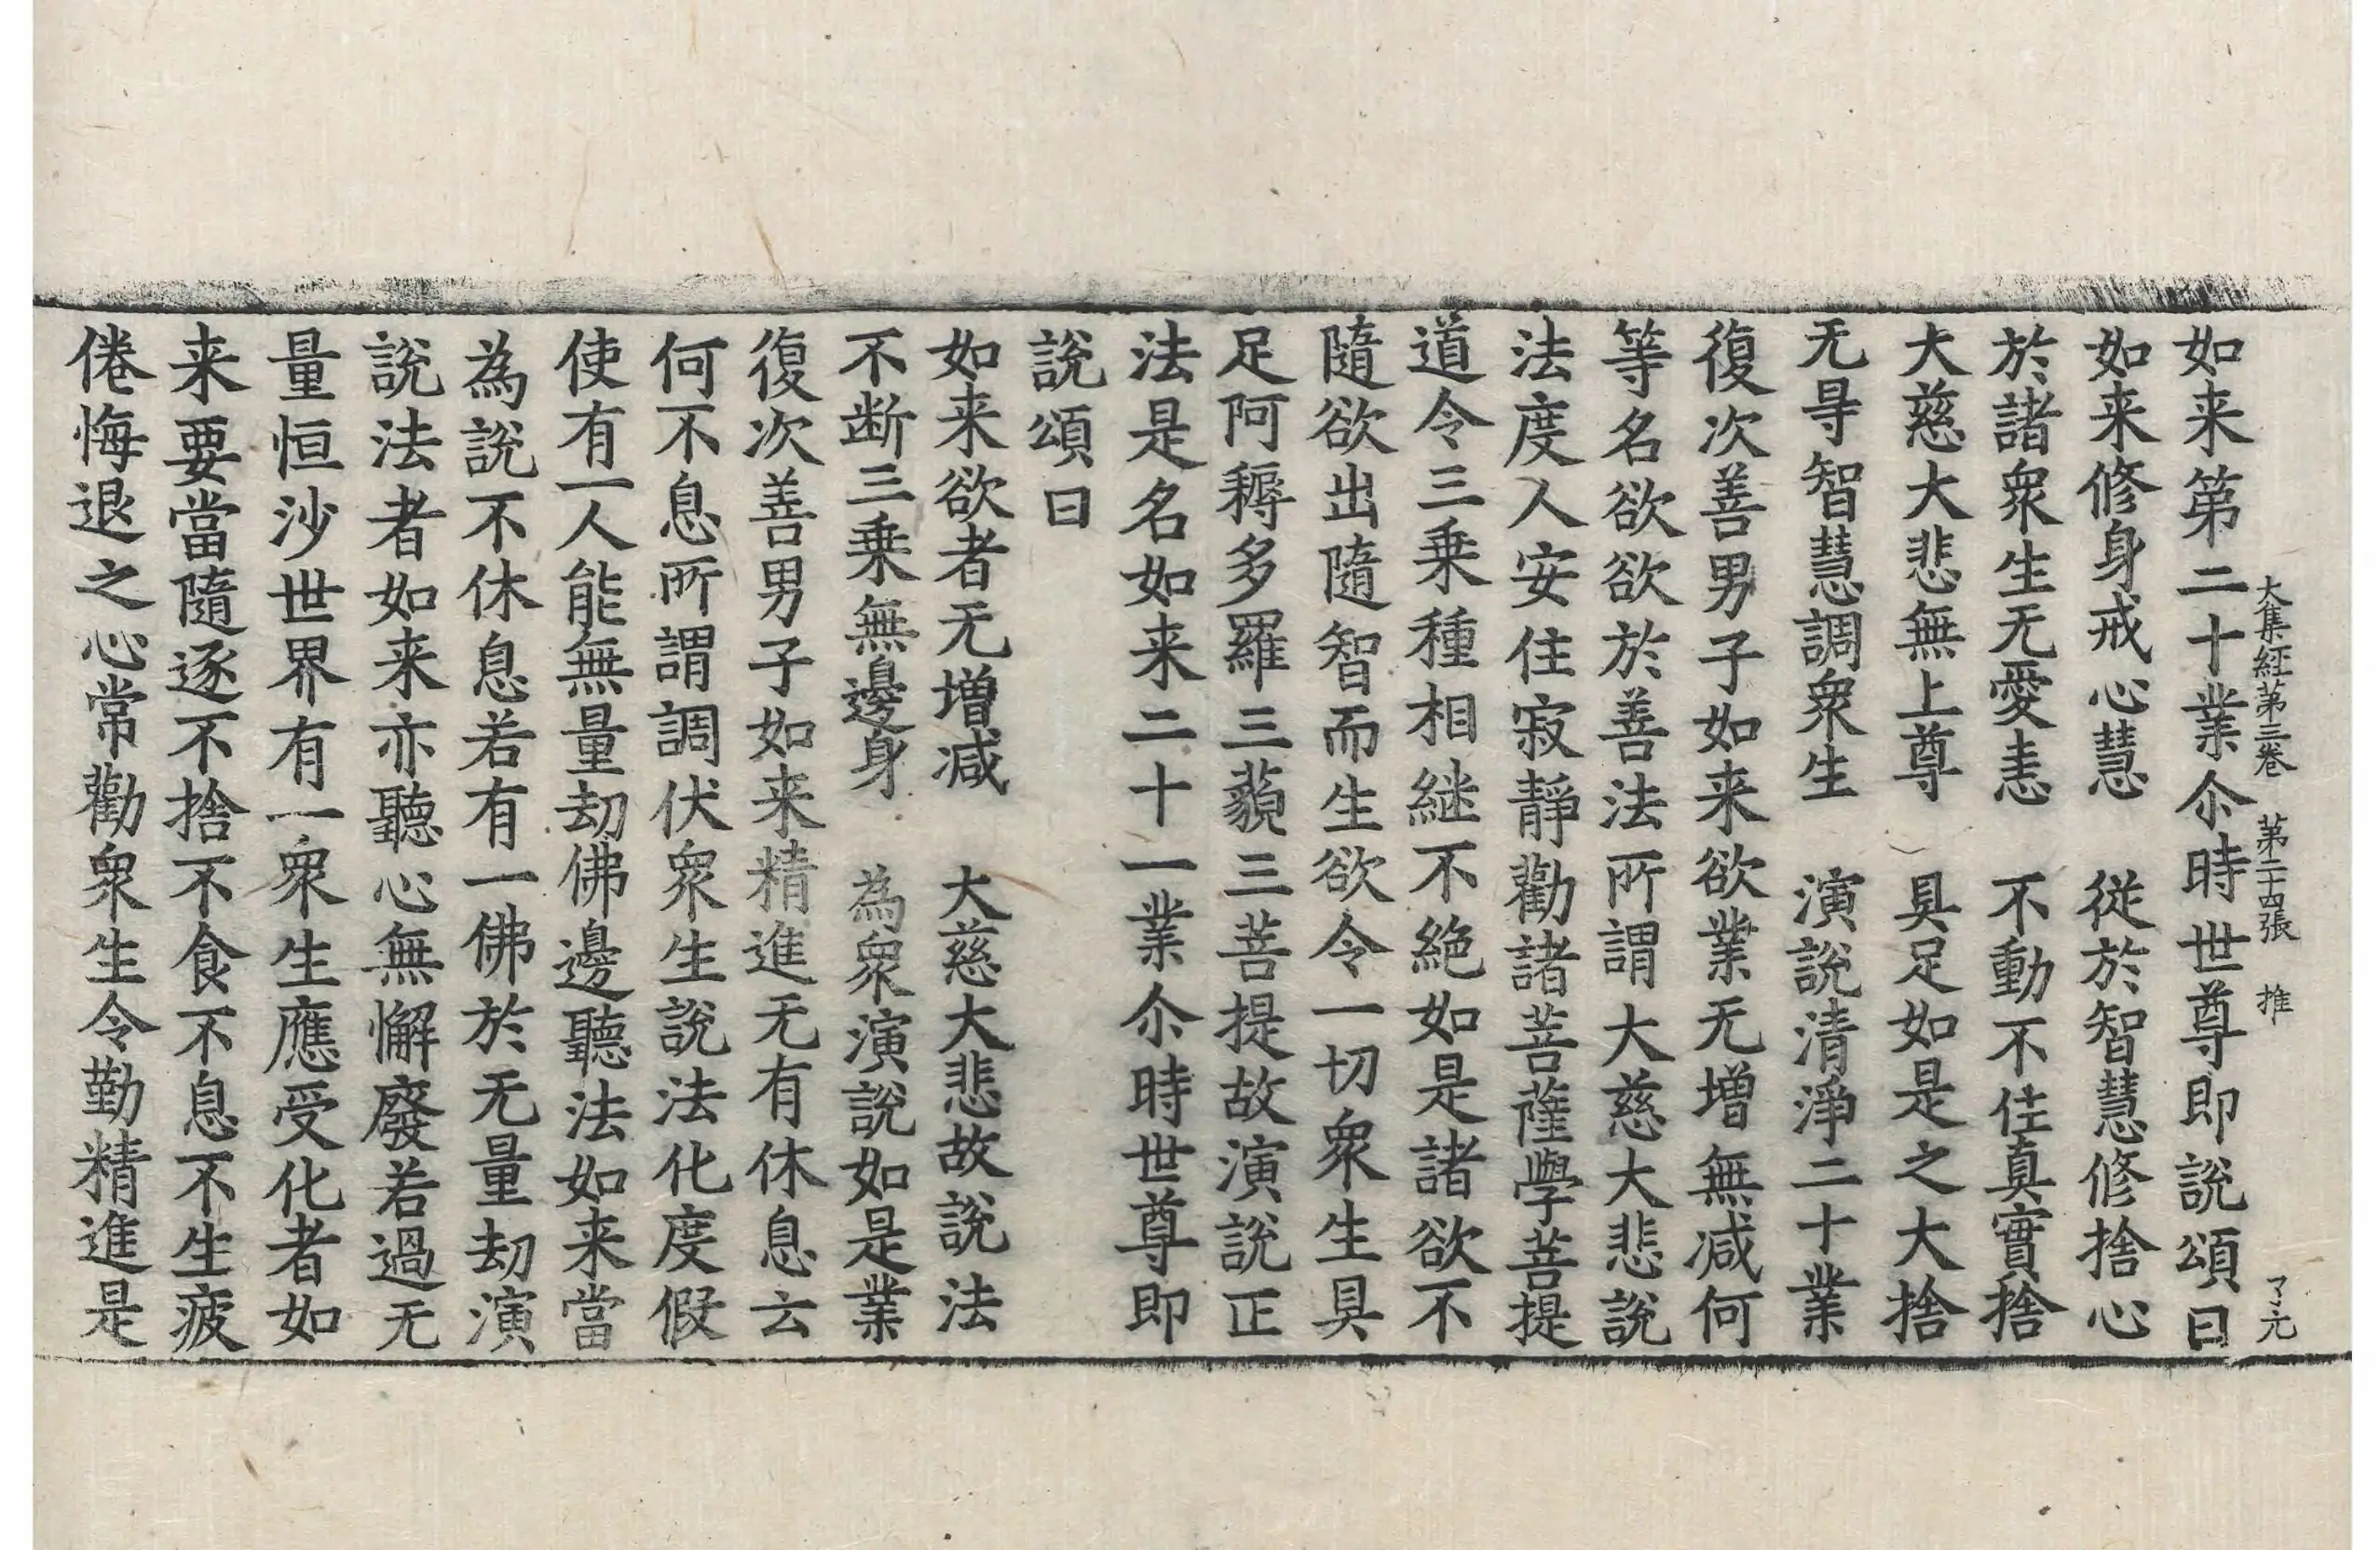 大集経第三卷 第二十四張 推 了元
如来第二十業尒時世尊即說頌曰
如来修身戒心慧 從於智慧修捨心
於諸衆生无愛恚 不動不住真實捨
大慈大悲無上尊 具足如是之大捨
无㝵智慧調衆生 演說清淨二十業
復次善男子如来欲業无增無减何
等名欲欲於善法所謂大慈大悲說
法度人安住寂靜勸諸菩薩學菩提
道令三乗種相継不絶如是諸欲不
隨欲出隨智而生欲令一切衆生具
足阿耨多羅三藐三菩提故演說正
法是名如来二十一業尒時世尊即
說頌曰
如来欲者无增减 大慈大悲故說法
不断三乗無邊身 為衆演說如是業
復次善男子如来精進无有休息云
何不息所謂調伏衆生說法化度假
使有一人能無量劫佛邊聽法如来當
為說不休息若有一佛於无量劫演
說法者如来亦聽心無懈廢若過无
量恒沙世界有一衆生應受化者如
来要當隨逐不捨不食不息不生疲
倦悔退之心常勸衆生令勤精進是